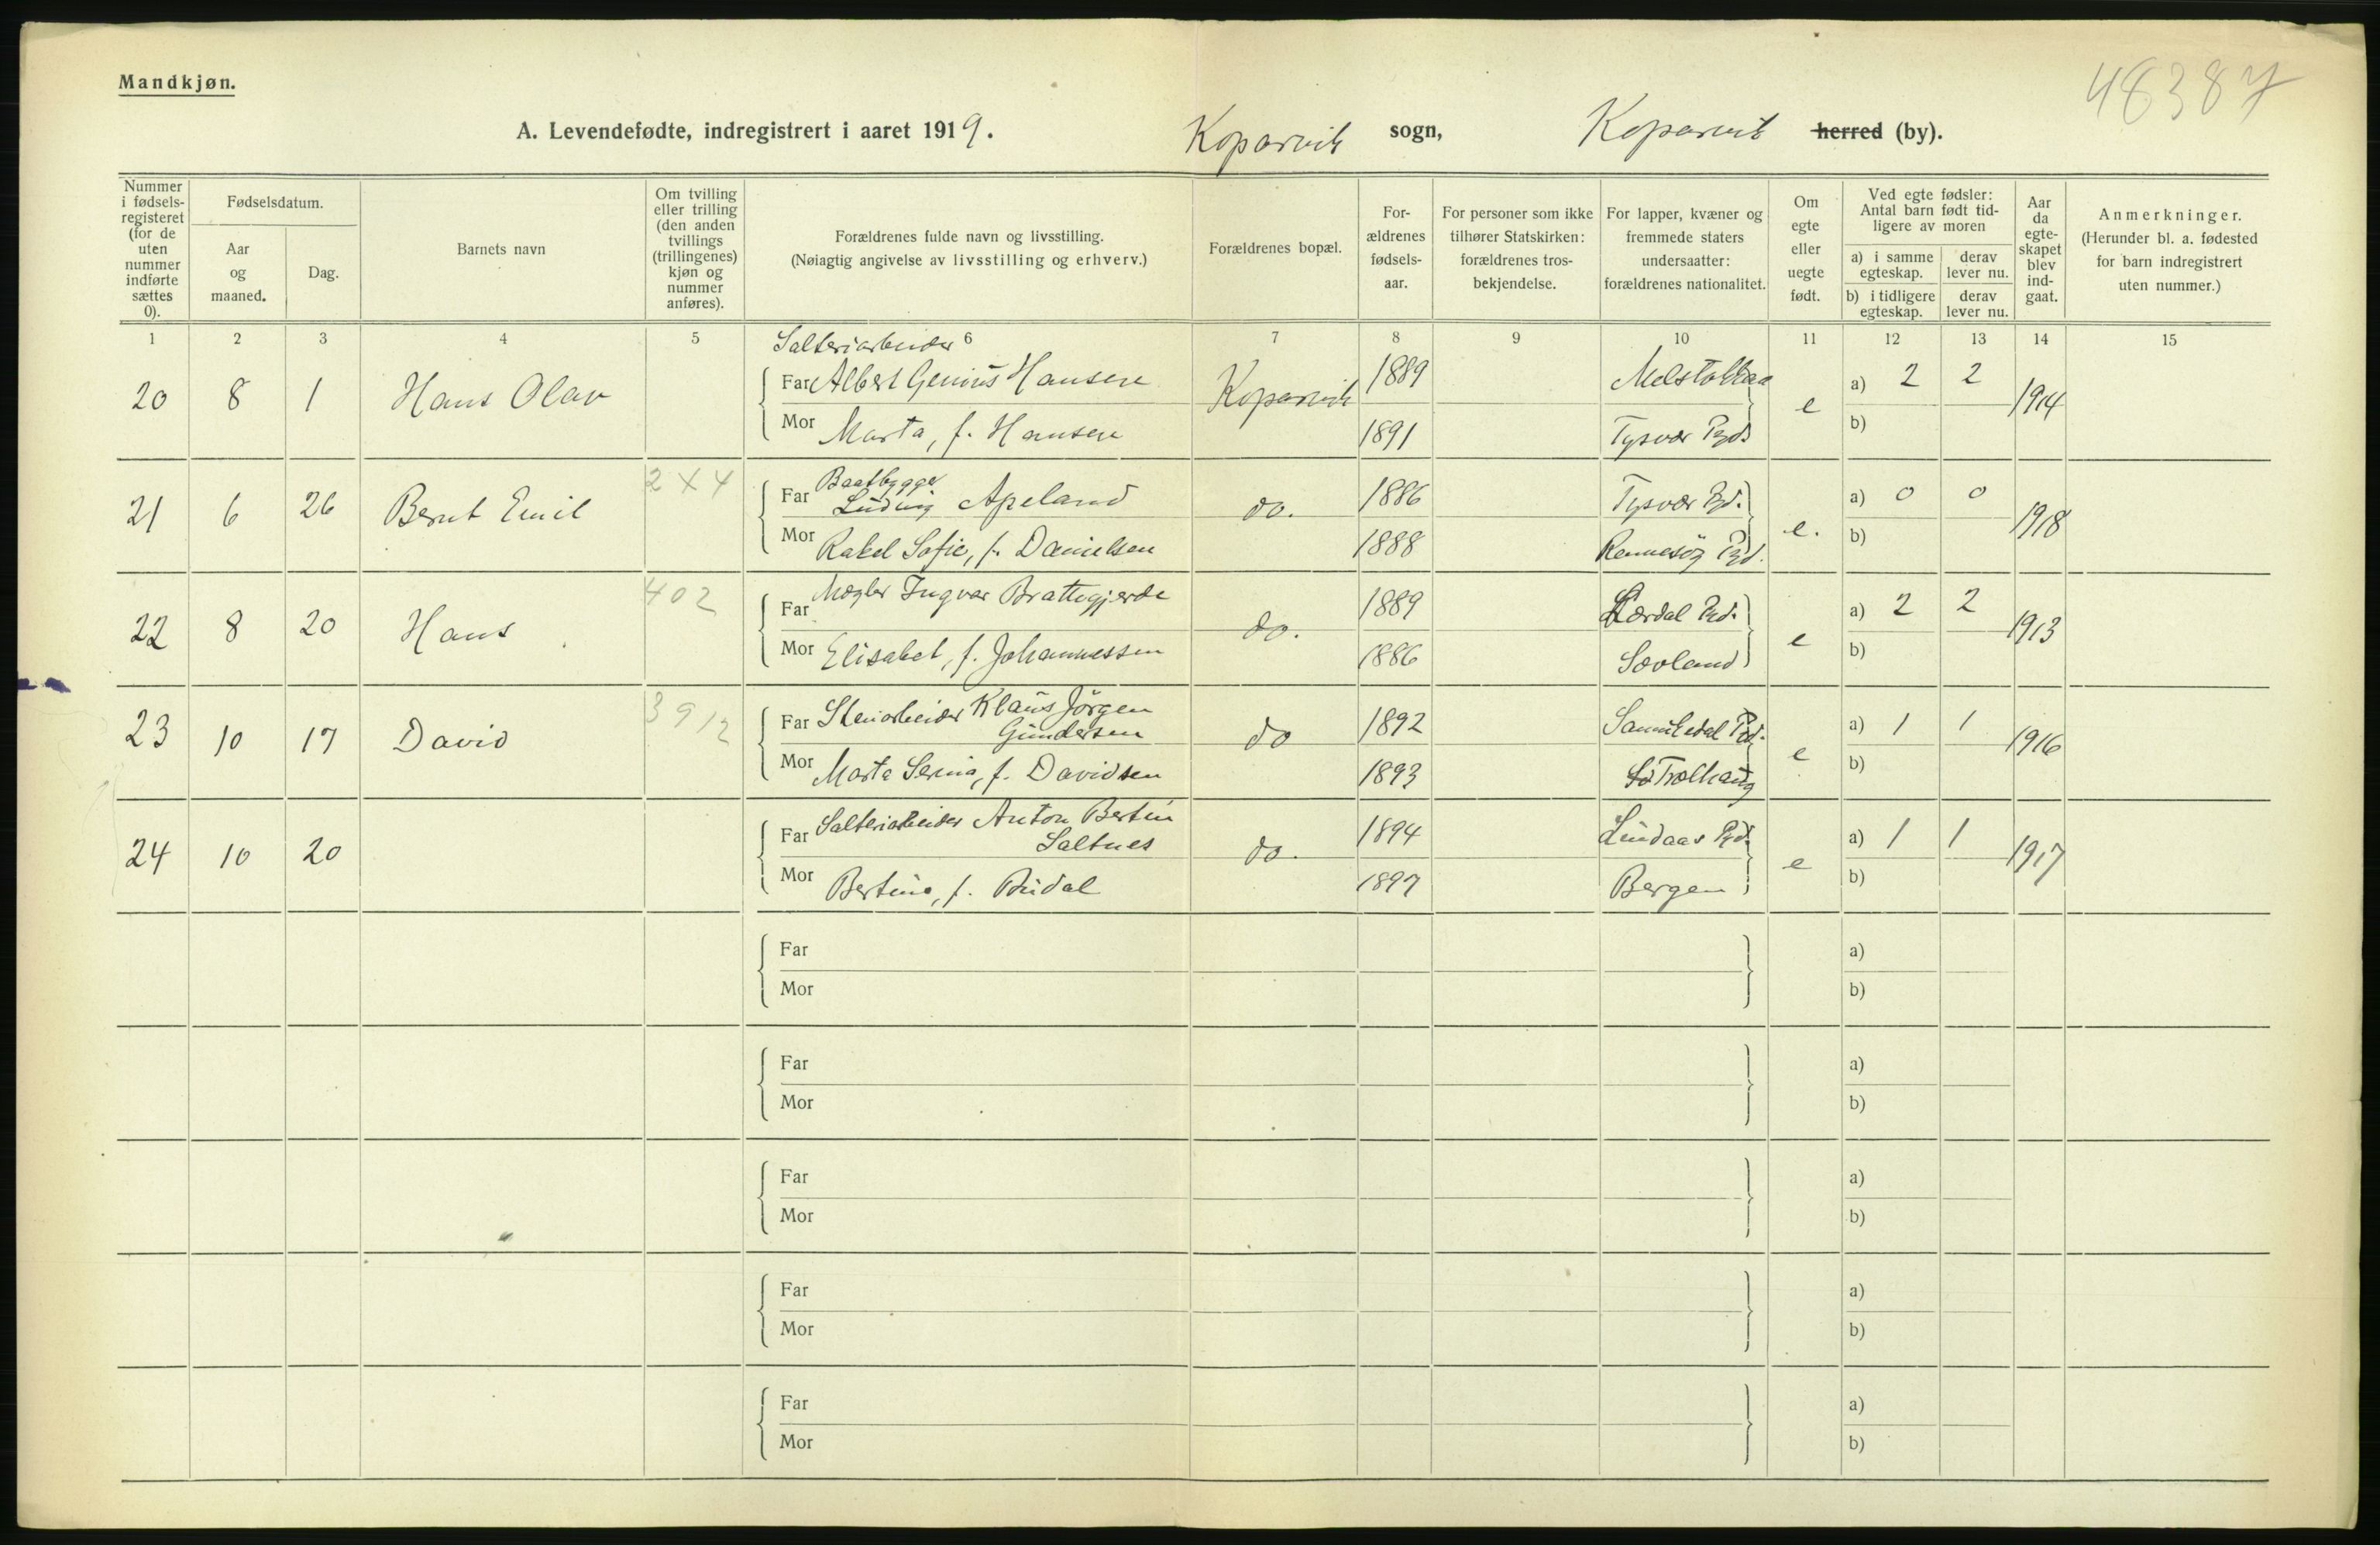 Mandkjøn.
48387
A. Levendefødte, indregistrert i aaret 1919. Kopervik sogn, Kopervik herred (by).
Nummer i fødsels-registeret (for de uten nummer indførte sættes 0).
Fødselsdatum.
Aar og maaned.
Dag.
Barnets navn
Om tvilling eller trilling (den anden tvillings (trillingenes) kjøn og nummer anføres).
Forældrenes fulde navn og livsstilling.
(Nøiagtig angivelse av livsstilling og erhverv.)
Forældrenes bopæl.
For-ældrenes fødsels-aar.
For personer som ikke tilhører Statskirken: forældrenes tros-bekjendelse.
For lapper, kvæner og fremmede staters undersaatter: forældrenes nationalitet.
Om egte eller uegte født.
Ved egte fødsler: Antal barn født tid-ligere av moren
a) i samme egteskap.
derav lever nu.
b) i tidligere egteskap.
derav lever nu.
Aar da egte-skapet blev ind-gaat.
Anmerkninger.
(Herunder bl. a. fødested for barn indregistrert uten nummer.)
1 2 3 4 5 6 7 8 9 10 11 12 13 14 15
Salteriarbeider
20 8 1 Hans Olav Far Albert Genius Hansen Kopervik 1889 e a) 2 2 1914
Mor Marta, f. Hansen 1891 Tysvær Pgd. b)
2 X 4 Baatbygger
21 6 26 Bernt Emil Far Ludvig Apeland do. 1886 Tysvær Pgd. e. a) 0 0 1918
Mor Rakel Sofie, f. Danielsen 1888 Rennesøy Pgd. b)
402 Mægler Ingvar Brattegjerde
22 8 20 Hans Far do. 1889 Lærdal Pgd. e a) 2 2 1913
Mor Elisabet, f. Johannessen 1886 Sævland b)
3912
23 10 17 David Far Stenarbeider Klaus Jörgen Gundersen do 1892 Pgd. e a) 1 1 1916
Mor Marta Serina, f. Davidsen 1893 b)
24 10 20 Far Salteriarbeider Anton Bertin Saltnes do. 1894 Lindaas Pgd. e a) 1 1 1917
Mor Bertine, f. 1897 Bergen b)
Far a)
Mor b)
Far a)
Mor b)
Far a)
Mor b)
Far a)
Mor b)
Far a)
Mor b)